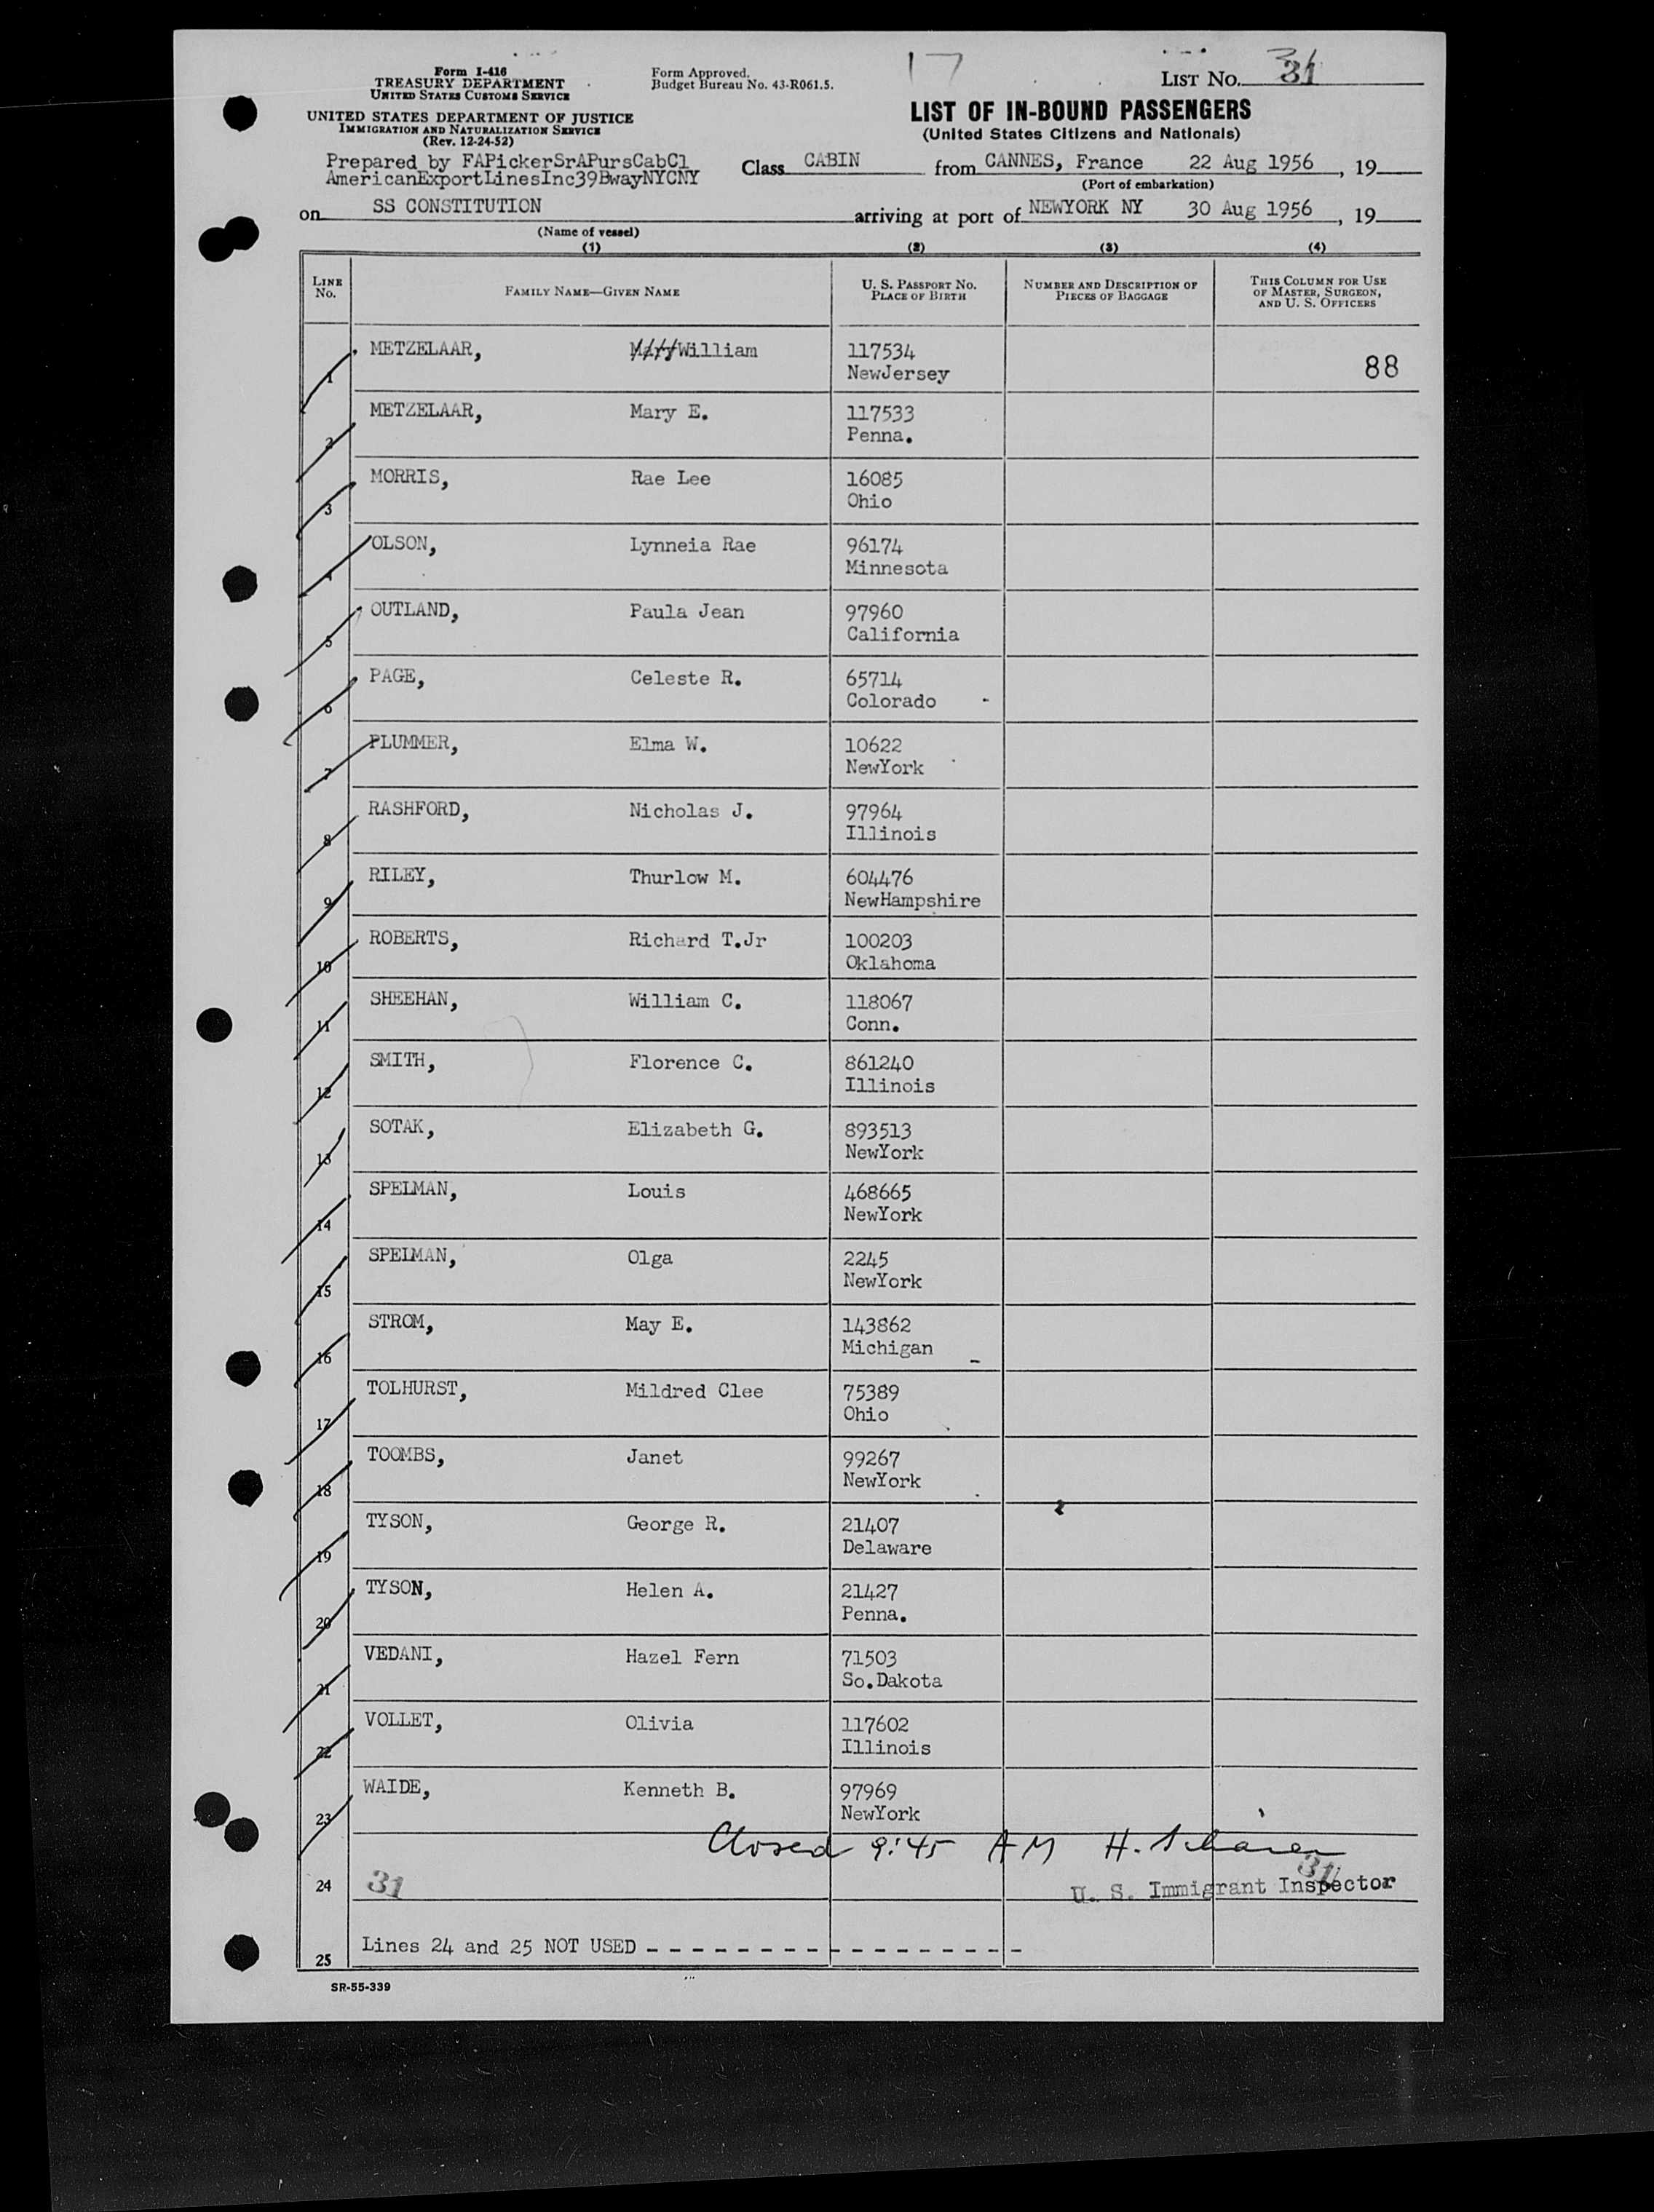 17
LIST NO. 31
Form I-416
TREASURY DEPARTMENT
UNITED STATES CUSTOMS SERVICE
Form Approved.
Budget Bureau No. 43-R061.5.
UNITED STATES DEPARTMENT OF JUSTICE
IMMIGRATION AND NATURALIZATION SERVICE
(Rev. 12-24-52)
LIST OF IN-BOUND PASSENGERS
(United States Citizens and Nationals)
Prepared by FAPickerSrAPursCabCl
AmericanExportLinesInc39BwayNYCNY
Class CABIN from CANNES, France 22 Aug 1956, 19
(Port of embarkation)
on SS CONSTITUTION arriving at port of NEWYORK NY 30 Aug 1956, 19
(Name of vessel)
(1) (2) (3) (4)
LINE No. FAMILY NAME—GIVEN NAME U. S. PASSPORT NO. PLACE OF BIRTH NUMBER AND DESCRIPTION OF PIECES OF BAGGAGE THIS COLUMN FOR USE OF MASTER, SURGEON, AND U. S. OFFICERS
1 METZELAAR, Mary William 117534 88
NewJersey
2 METZELAAR, Mary E. 117533
Penna.
3 MORRIS, Rae Lee 16085
Ohio
4 OLSON, Lynneia Rae 96174
Minnesota
5 OUTLAND, Paula Jean 97960
California
6 PAGE, Celeste R. 65714
Colorado
7 PLUMMER, Elma W. 10622
NewYork
8 RASHFORD, Nicholas J. 97964
Illinois
9 RILEY, Thurlow M. 604476
NewHampshire
10 ROBERTS, Richard T.Jr 100203
Oklahoma
11 SHEEHAN, William C. 118067
Conn.
12 SMITH, Florence C. 861240
Illinois
13 SOTAK, Elizabeth G. 893513
NewYork
14 SPELMAN, Louis 468665
NewYork
15 SPELMAN, Olga 2245
NewYork
16 STROM, May E. 143862
Michigan
17 TOLHURST, Mildred Clee 75389
Ohio
18 TOOMBS, Janet 99267
NewYork
19 TYSON, George R. 21407
Delaware
20 TYSON, Helen A. 21427
Penna.
21 VEDANI, Hazel Fern 71503
So.Dakota
22 VOLLET, Olivia 117602
Illinois
23 WAIDE, Kenneth B. 97969
NewYork
Closed 9:45 AM H.
24 31 31
U. S. Immigrant Inspector
25 Lines 24 and 25 NOT USED - - - - - - - - - - - - - - - - - -
SR-55-339